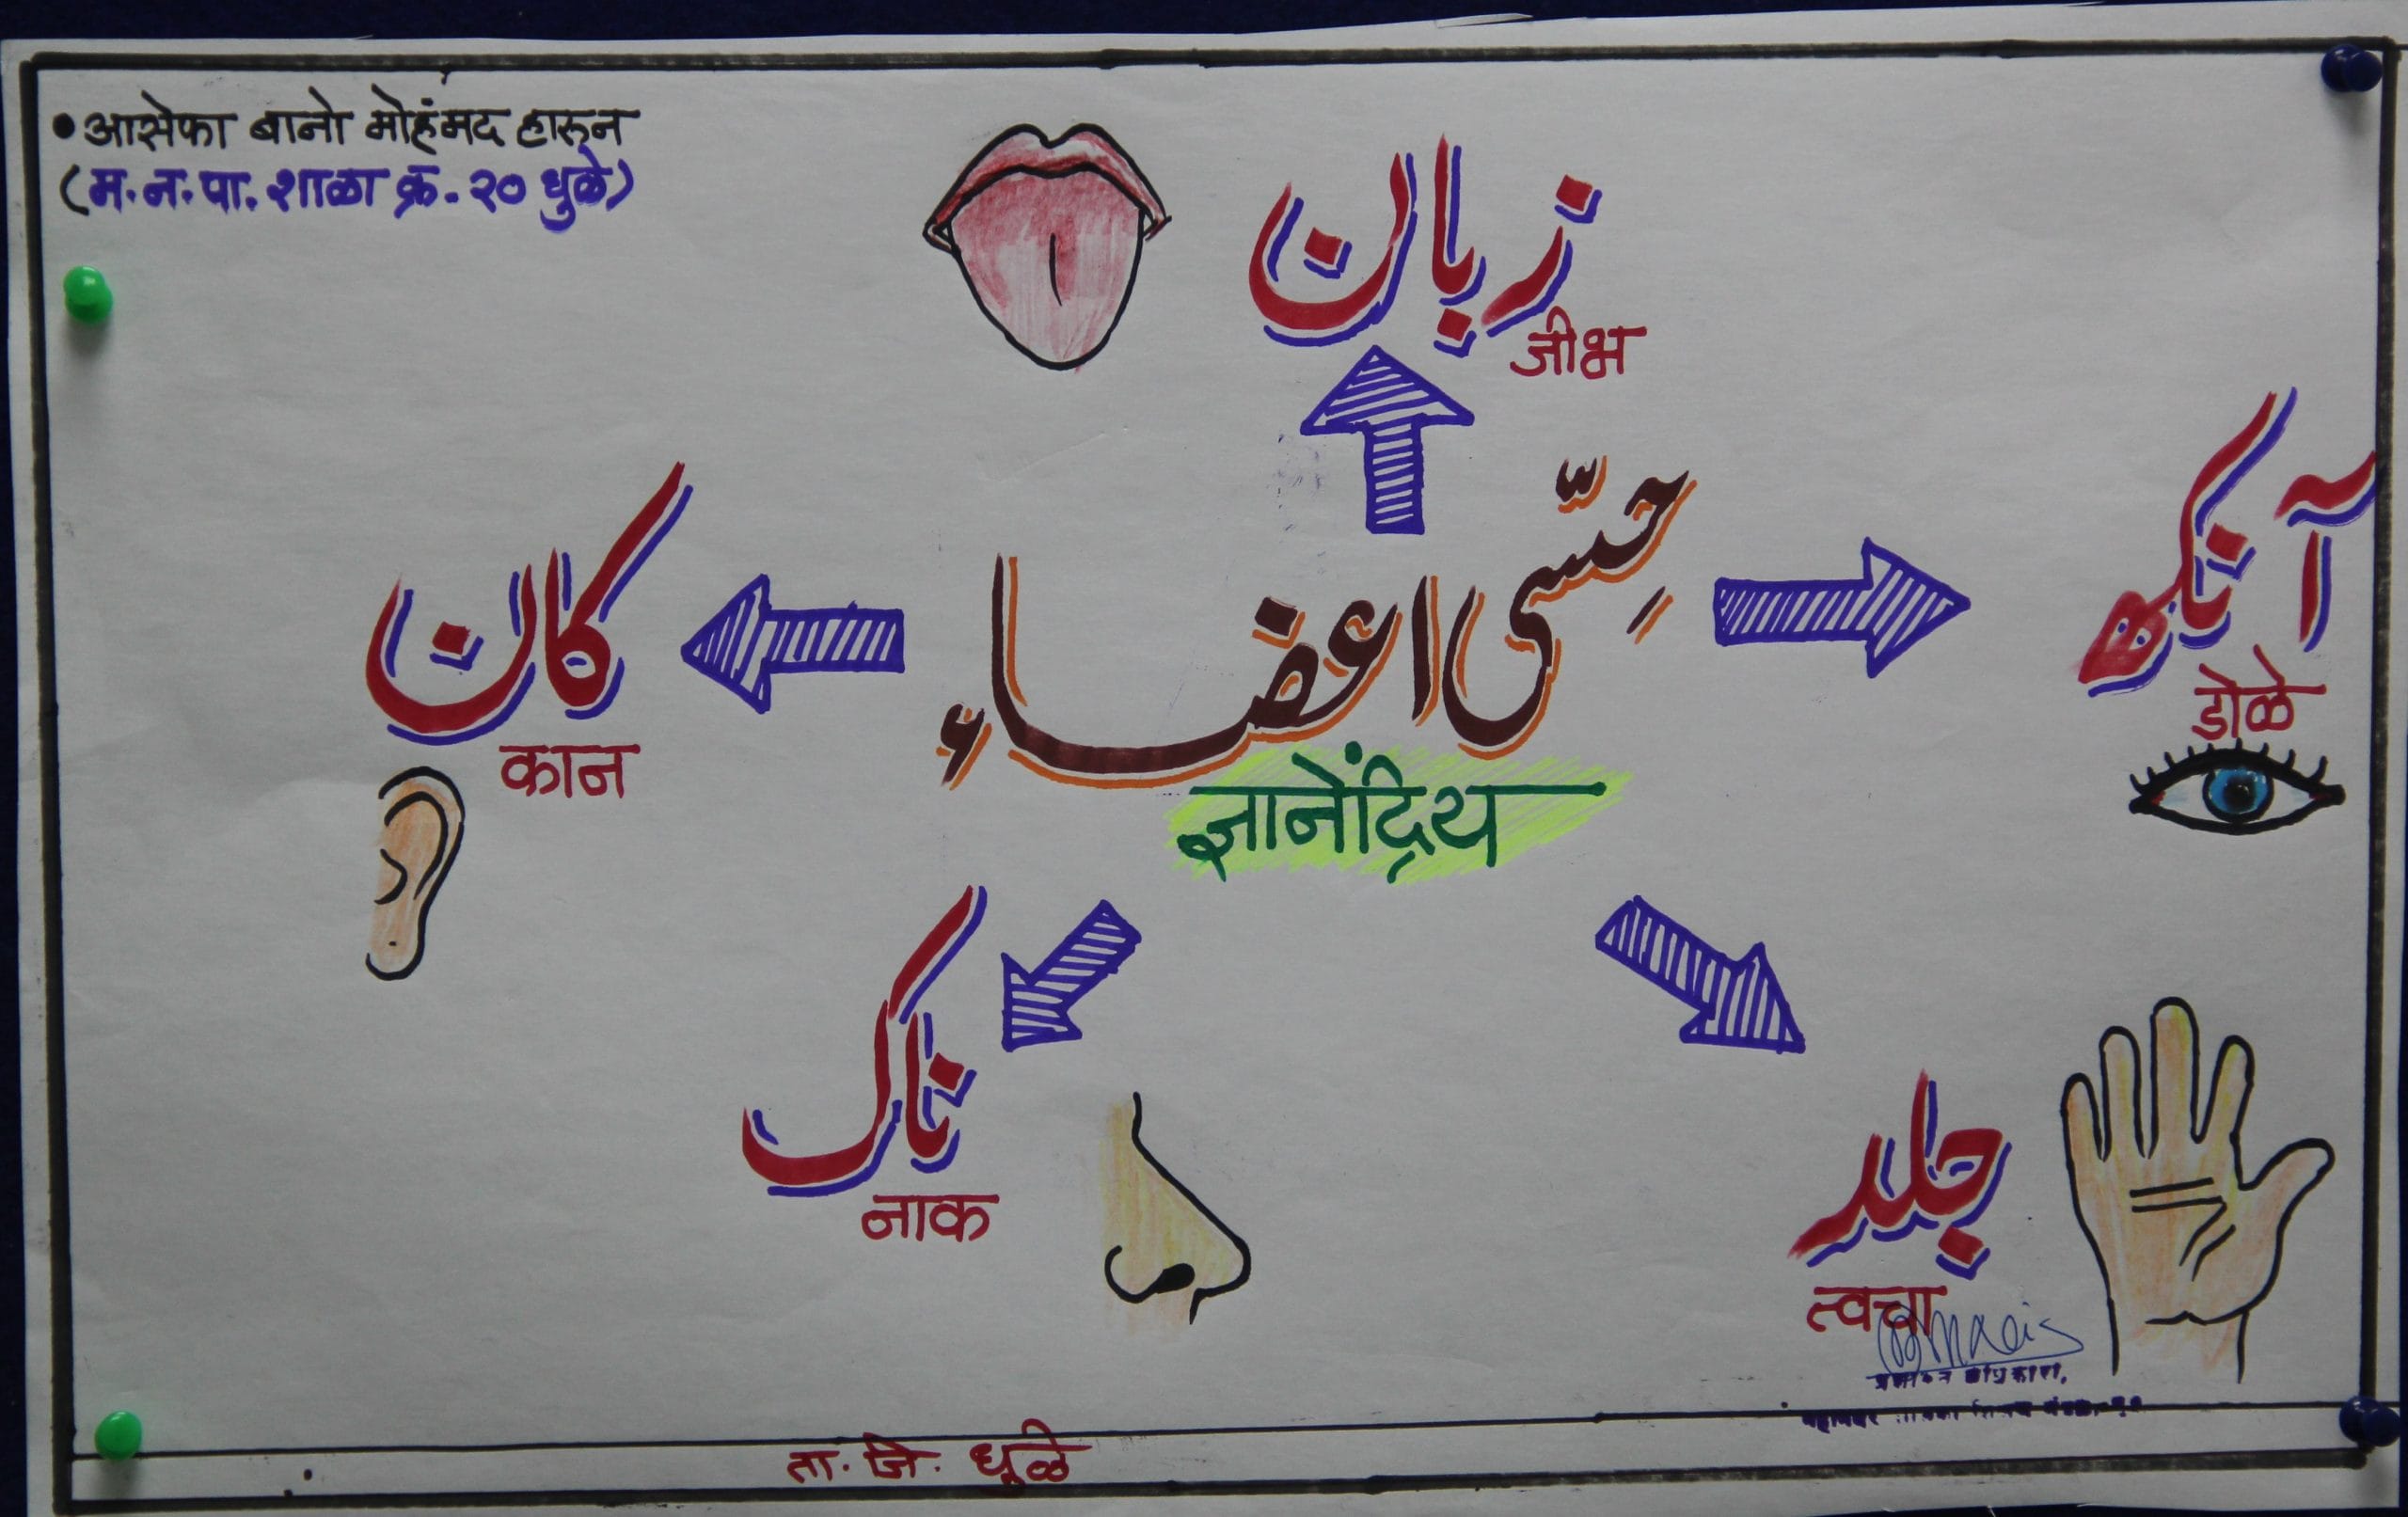 • आसेफा बानो मोहंमद हारुन
(म.न.पा. शाळा क्र. २० धुळे)
زبان
जीभ
آنکھ
डोळे
حِسّی اعضاء
ज्ञानेंद्रिय
کان
कान
ناک
नाक
جلد
त्वचा
ता. जि. धुळे